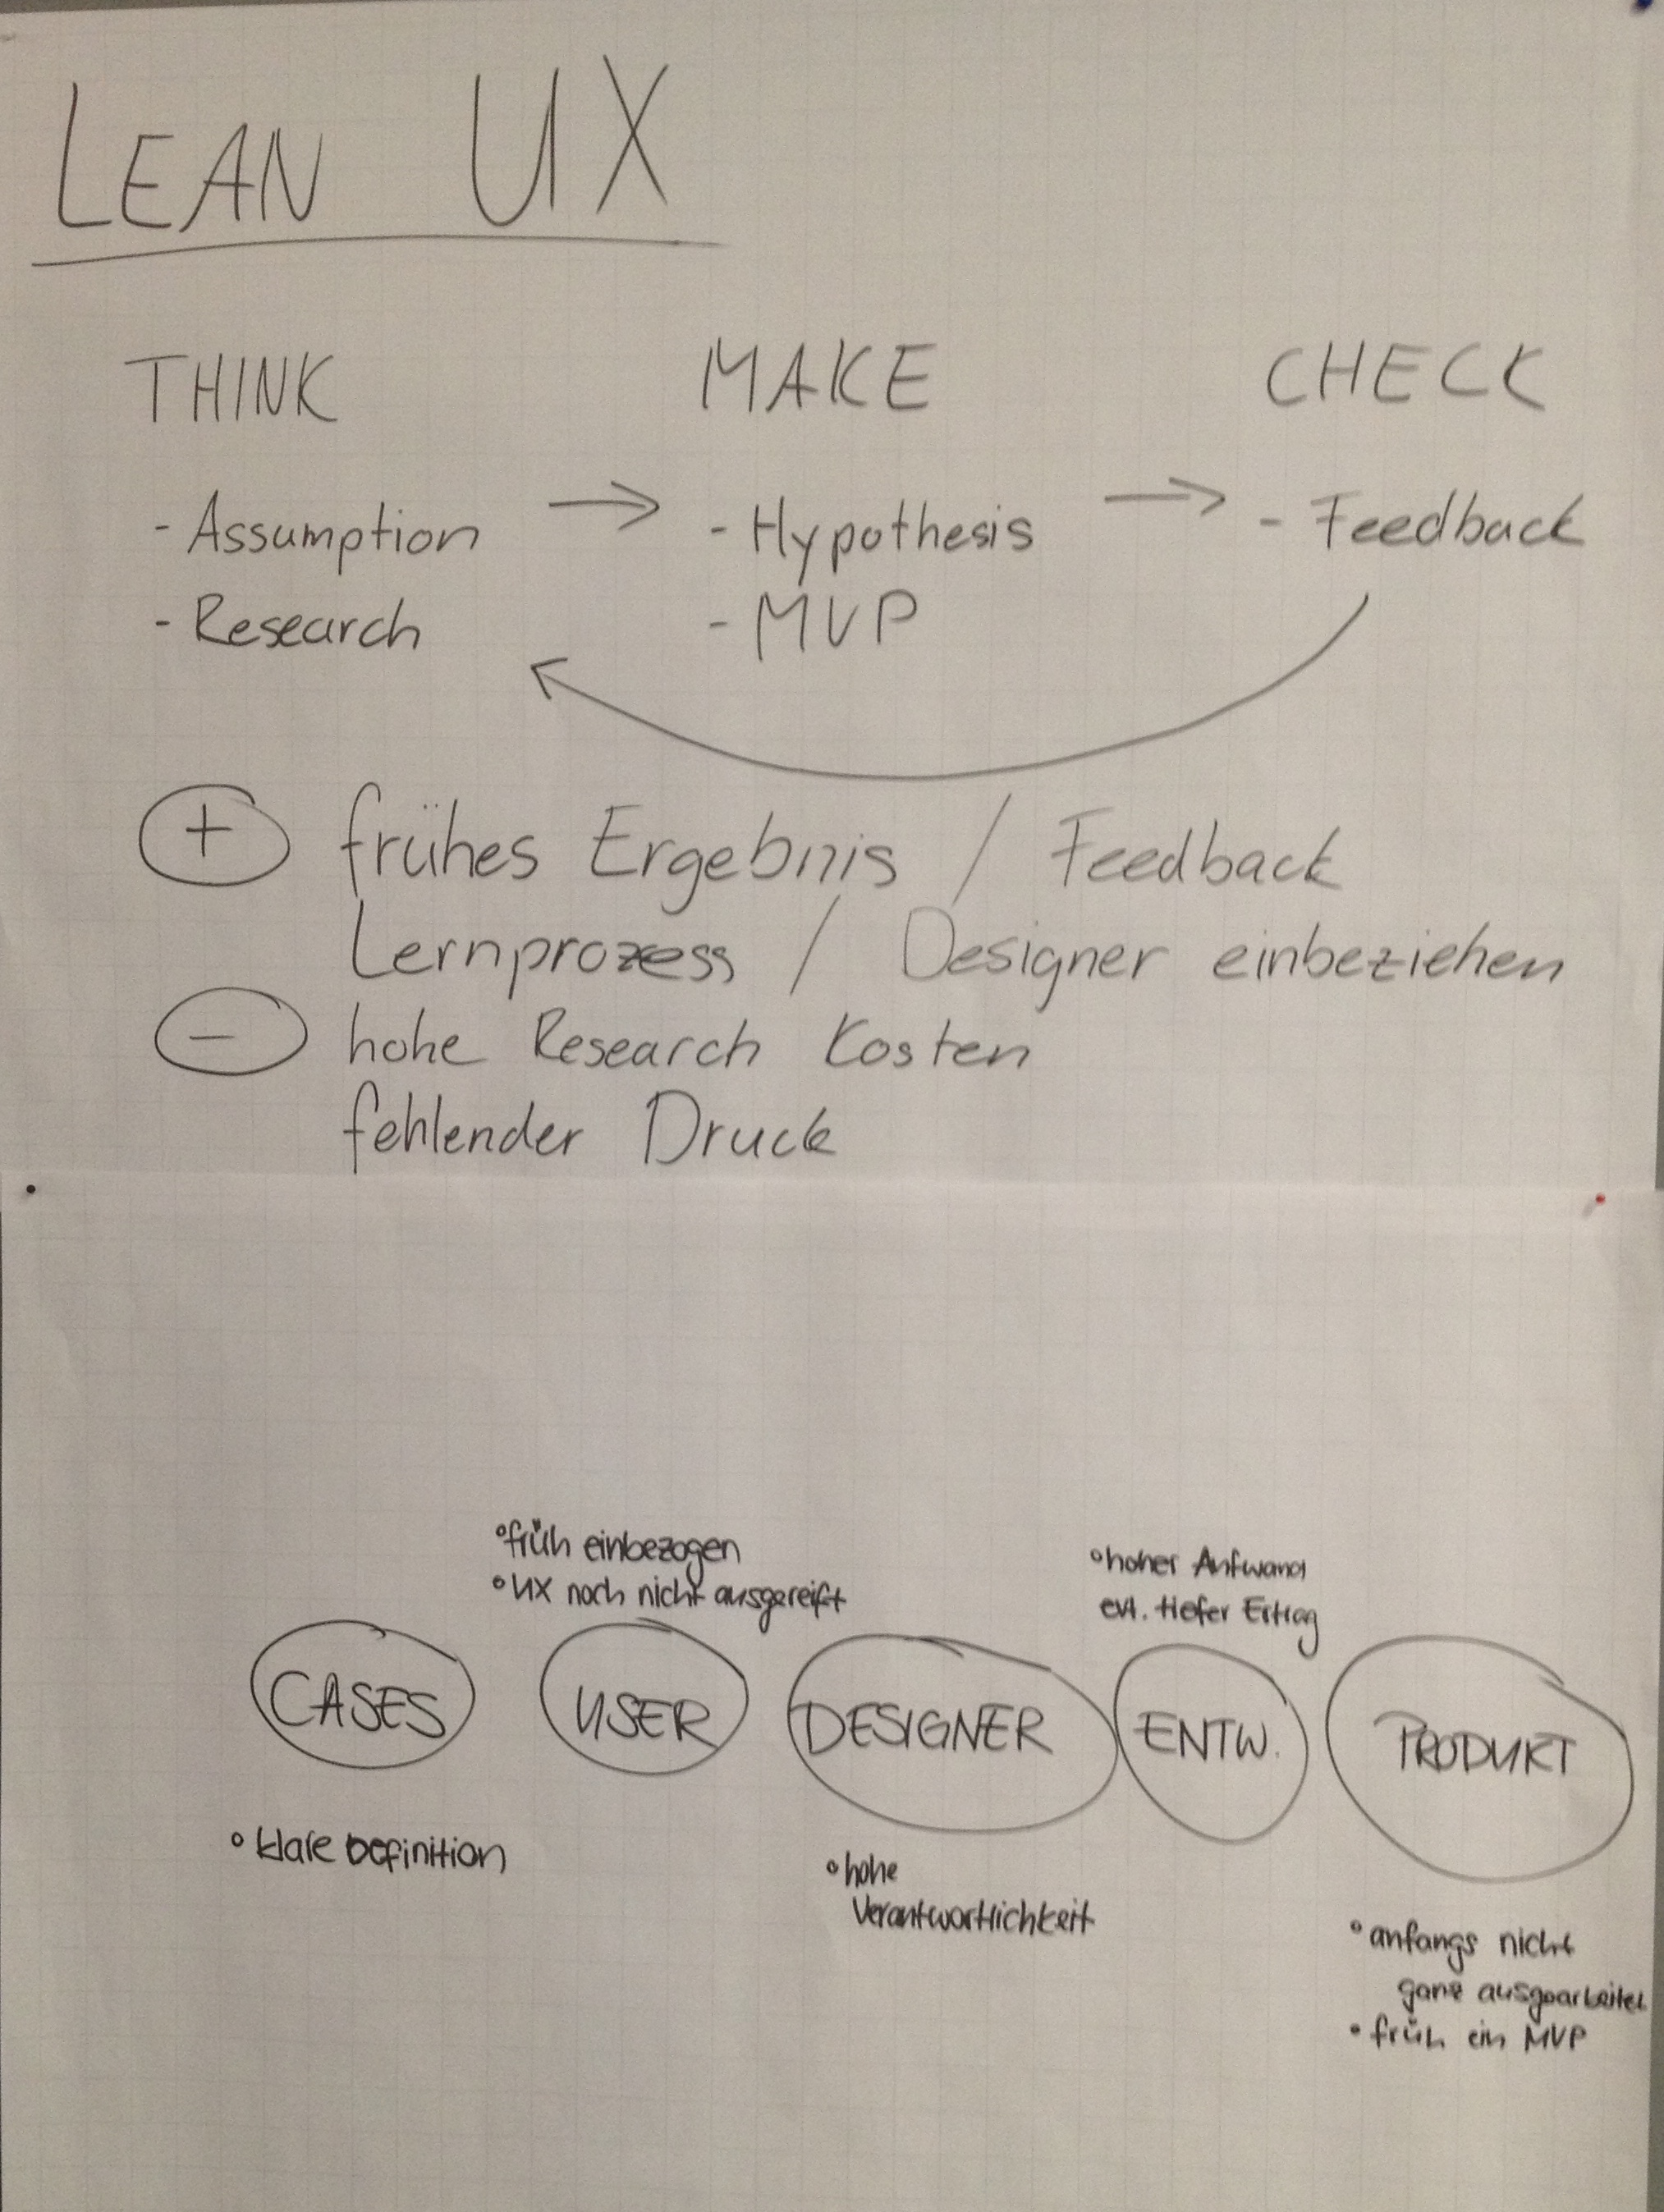 LEAN UX
THINK MAKE CHECK
- Assumption → - Hypothesis → - Feedback
- Research - MVP
+ frühes Ergebnis / Feedback
Lernprozess / Designer einbeziehen
- hohe Research Kosten
fehlender Druck
° früh einbezogen
° UX noch nicht ausgereift
° hoher Aufwand
evt. tiefer Ertrag
CASES USER DESIGNER ENTW. PRODUKT
° klare Definition
° hohe
Verantwortlichkeit
° anfangs nicht
ganz ausgearbeitet
° früh ein MVP